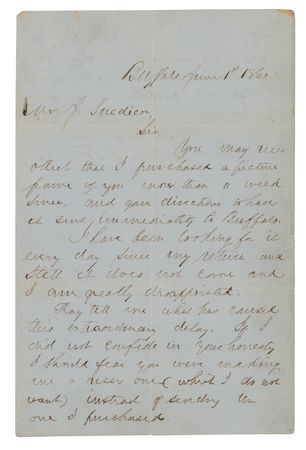 Buffalo June 1st 1860
Mr. J. Snedicor,
Sir
You may rec
ollect that I purchased a picture
frame of you more than a week
since, and gave directions to have
it sent immediately to Buffalo.
I have been looking for it
every day since my return and
still it does not come and
I am greatly disappointed.
Pray tell me what has caused
this extraordinary delay. If I
did not confide in your honesty
I should fear you were making
me a new one (which I do not
want) instead of sending the
one I purchased.